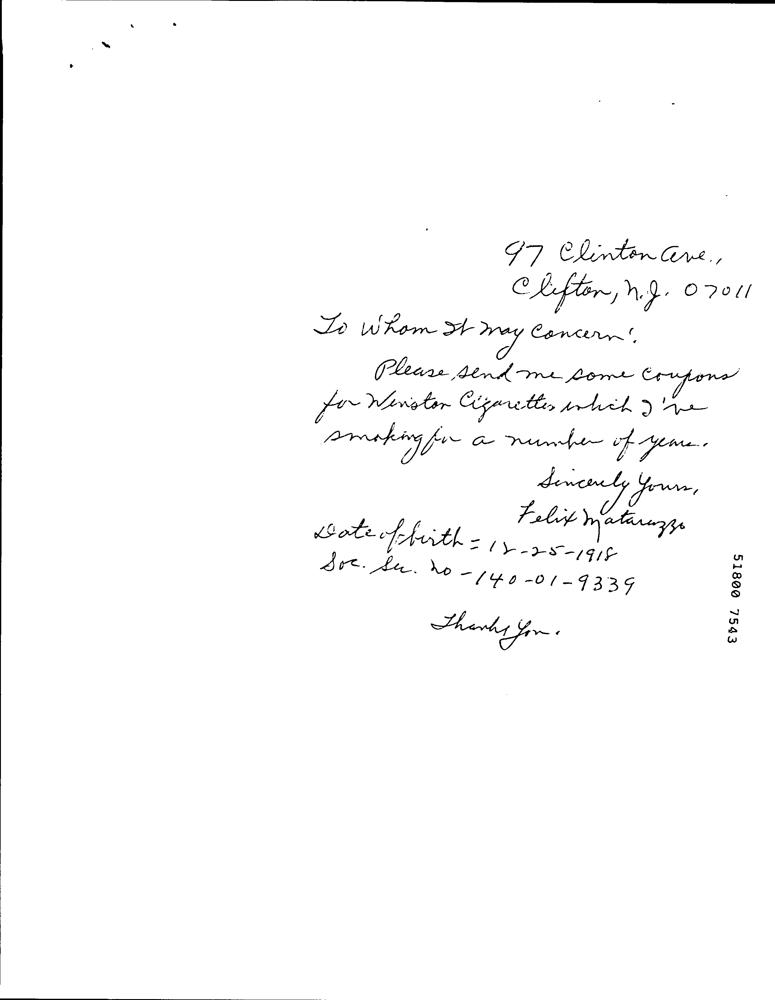 97 Clinton Ave.,
Clifton, N.J. 07011
To Whom It May Concern:
Please send me some coupons
for Winston Cigarettes which I've
smoking for a number of years.
Sincerely Yours,
Felix Matarazzo
Date of birth = 12-25-1918
Soc. Sec. No - 140-01-9339
Thank You.
51800 7543